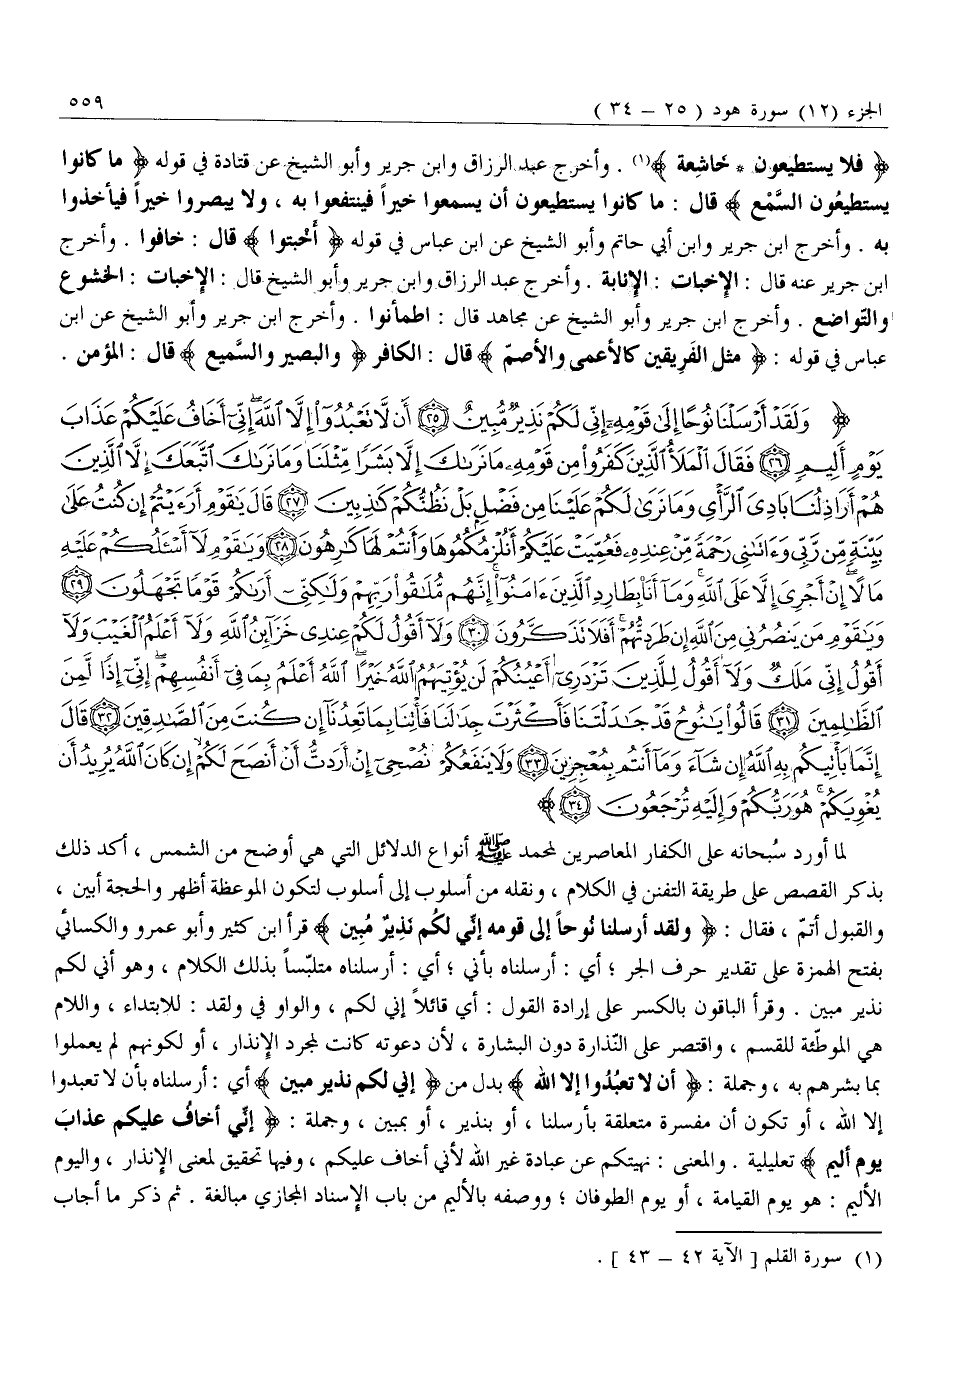 الجزء (١٢) سورة هود ( ٢٥ – ٣٤ ) ٥٥٩
﴿ فلا يستطيعون * خَاشِعة ﴾(١) . وأخرج عبد الرزاق وابن جرير وأبو الشيخ عن قتادة في قوله ﴿ ما كانوا
يستطيعُون السَّمْع ﴾ قال : ما كانوا يستطيعون أن يسمعوا خيراً فينتفعوا به ، ولا يبصروا خيراً فيأخذوا
به . وأخرج ابن جرير وابن أبي حاتم وأبو الشيخ عن ابن عباس في قوله ﴿ أَخْبتوا ﴾ قال : خافوا . وأخرج
ابن جرير عنه قال : الإخبات : الإنابة . وأخرج عبد الرزاق وابن جرير وأبو الشيخ قال : الإخبات : الخشوع
والتواضع . وأخرج ابن جرير وأبو الشيخ عن مجاهد قال : اطمأنوا . وأخرج ابن جرير وأبو الشيخ عن ابن
عباس في قوله : ﴿ مثل الفَرِيقين كالأعمى والأصمّ ﴾ قال : الكافر ﴿ والبصير والسَّميع ﴾ قال : المؤمن .
﴿ وَلَقَدْ أَرْسَلْنَا نُوحًا إِلَىٰ قَوْمِهِۦٓ إِنِّي لَكُمْ نَذِيرٌ مُّبِينٌ ﴿٢٥﴾ أَن لَّا تَعْبُدُوٓا۟ إِلَّا ٱللَّهَ ۖ إِنِّيٓ أَخَافُ عَلَيْكُمْ عَذَابَ
يَوْمٍ أَلِيمٍ ﴿٢٦﴾ فَقَالَ ٱلْمَلَأُ ٱلَّذِينَ كَفَرُوا۟ مِن قَوْمِهِۦ مَا نَرَىٰكَ إِلَّا بَشَرًا مِّثْلَنَا وَمَا نَرَىٰكَ ٱتَّبَعَكَ إِلَّا ٱلَّذِينَ
هُمْ أَرَاذِلُنَا بَادِيَ ٱلرَّأْيِ وَمَا نَرَىٰ لَكُمْ عَلَيْنَا مِن فَضْلٍ بَلْ نَظُنُّكُمْ كَٰذِبِينَ ﴿٢٧﴾ قَالَ يَٰقَوْمِ أَرَءَيْتُمْ إِن كُنتُ عَلَىٰ
بَيِّنَةٍ مِّن رَّبِّي وَءَاتَىٰنِي رَحْمَةً مِّنْ عِندِهِۦ فَعُمِّيَتْ عَلَيْكُمْ أَنُلْزِمُكُمُوهَا وَأَنتُمْ لَهَا كَٰرِهُونَ ﴿٢٨﴾ وَيَٰقَوْمِ لَآ أَسْـَٔلُكُمْ عَلَيْهِ
مَالًا ۖ إِنْ أَجْرِيَ إِلَّا عَلَى ٱللَّهِ ۚ وَمَآ أَنَا۠ بِطَارِدِ ٱلَّذِينَ ءَامَنُوٓا۟ ۚ إِنَّهُم مُّلَٰقُوا۟ رَبِّهِمْ وَلَٰكِنِّيٓ أَرَىٰكُمْ قَوْمًا تَجْهَلُونَ ﴿٢٩﴾
وَيَٰقَوْمِ مَن يَنصُرُنِي مِنَ ٱللَّهِ إِن طَرَدتُّهُمْ ۚ أَفَلَا تَذَكَّرُونَ ﴿٣٠﴾ وَلَآ أَقُولُ لَكُمْ عِندِي خَزَآئِنُ ٱللَّهِ وَلَآ أَعْلَمُ ٱلْغَيْبَ وَلَآ
أَقُولُ إِنِّي مَلَكٌ وَلَآ أَقُولُ لِلَّذِينَ تَزْدَرِيٓ أَعْيُنُكُمْ لَن يُؤْتِيَهُمُ ٱللَّهُ خَيْرًا ۖ ٱللَّهُ أَعْلَمُ بِمَا فِيٓ أَنفُسِهِمْ ۖ إِنِّيٓ إِذًا لَّمِنَ
ٱلظَّٰلِمِينَ ﴿٣١﴾ قَالُوا۟ يَٰنُوحُ قَدْ جَٰدَلْتَنَا فَأَكْثَرْتَ جِدَٰلَنَا فَأْتِنَا بِمَا تَعِدُنَآ إِن كُنتَ مِنَ ٱلصَّٰدِقِينَ ﴿٣٢﴾ قَالَ
إِنَّمَا يَأْتِيكُم بِهِ ٱللَّهُ إِن شَآءَ وَمَآ أَنتُم بِمُعْجِزِينَ ﴿٣٣﴾ وَلَا يَنفَعُكُمْ نُصْحِيٓ إِنْ أَرَدتُّ أَنْ أَنصَحَ لَكُمْ إِن كَانَ ٱللَّهُ يُرِيدُ أَن
يُغْوِيَكُمْ ۚ هُوَ رَبُّكُمْ وَإِلَيْهِ تُرْجَعُونَ ﴿٣٤﴾ ﴾
لما أورد سُبحانه على الكفار المعاصرين لمحمد ﷺ أنواع الدلائل التي هي أوضح من الشمس ، أكد ذلك
بذكر القصص على طريقة التفنن في الكلام ، ونقله من أسلوب إلى أسلوب لتكون الموعظة أظهر والحجة أبين ،
والقبول أتمّ ، فقال : ﴿ ولقد أرسلنا نُوحاً إلى قومه إنّي لكُم نَذِيرٌ مُبين ﴾ قرأ ابن كثير وأبو عمرو والكسائي
بفتح الهمزة على تقدير حرف الجر ؛ أي : أرسلناه بأني ؛ أي : أرسلناه متلبّساً بذلك الكلام ، وهو أني لكم
نذير مبين . وقرأ الباقون بالكسر على إرادة القول : أي قائلاً إني لكم ، والواو في ولقد : للابتداء ، واللام
هي الموطّئة للقسم ، واقتصر على النّذارة دون البشارة ، لأن دعوته كانت لمجرد الإنذار ، أو لكونهم لم يعملوا
بما بشرهم به ، وجملة : ﴿ أن لا تعبُدُوا إلا الله ﴾ بدل من ﴿ إني لكم نذير مبين ﴾ أي : أرسلناه بأن لا تعبدوا
إلا الله ، أو تكون أن مفسرة متعلقة بأرسلنا ، أو بنذير ، أو بمبين ، وجملة : ﴿ إنّي أخافُ عليكم عذابَ
يوم أليم ﴾ تعليلية . والمعنى : نهيتكم عن عبادة غير الله لأني أخاف عليكم ، وفيها تحقيق لمعنى الإنذار ، واليوم
الأليم : هو يوم القيامة ، أو يوم الطوفان ؛ ووصفه بالأليم من باب الإسناد المجازي مبالغة . ثم ذكر ما أجاب
(١) سورة القلم [ الآية ٤٢ – ٤٣ ] .